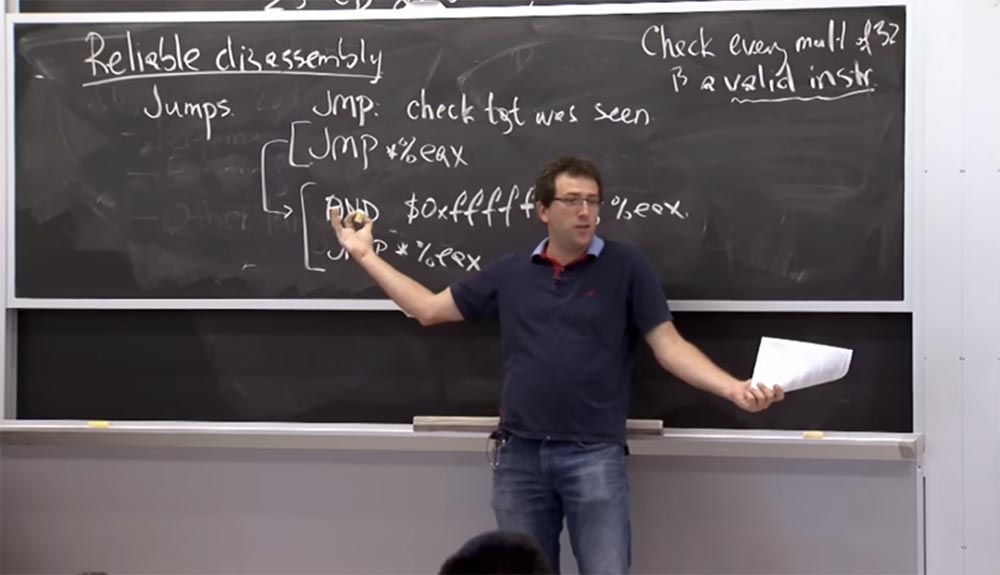 Reliable disassembly
Check every mult of 32
is a valid instr.
Jumps. JMP: check tgt was seen.
JMP *%eax
AND $0xfffff %eax.
JMP *%eax